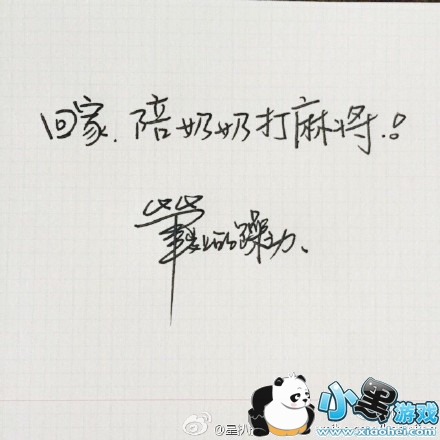 回家.陪奶奶打麻将.!
的躁动、
@星扒
小黑游戏
www.xiaohei.com